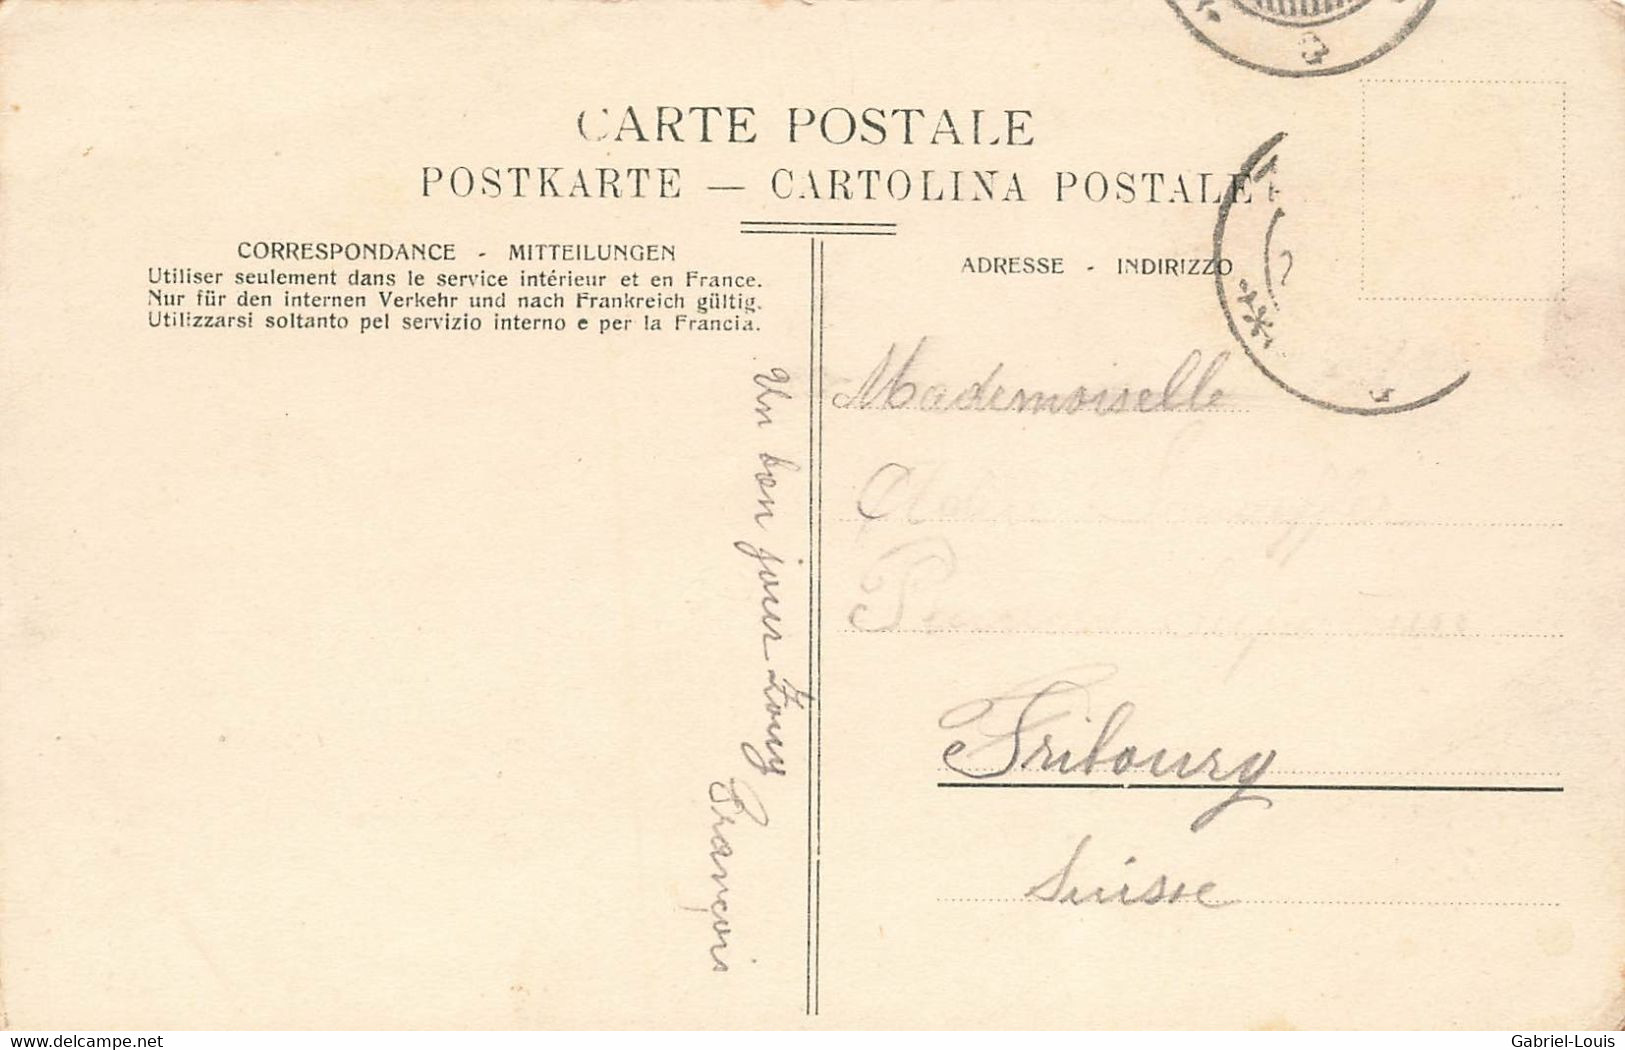 CARTE POSTALE
POSTKARTE — CARTOLINA POSTALE
CORRESPONDANCE - MITTEILUNGEN
Utiliser seulement dans le service intérieur et en France.
Nur für den internen Verkehr und nach Frankreich gültig.
Utilizzarsi soltanto pel servizio interno e per la Francia.
Un bon jour
François
ADRESSE - INDIRIZZO
Mademoiselle
Fribourg
Suisse
delcampe.net
Gabriel-Louis